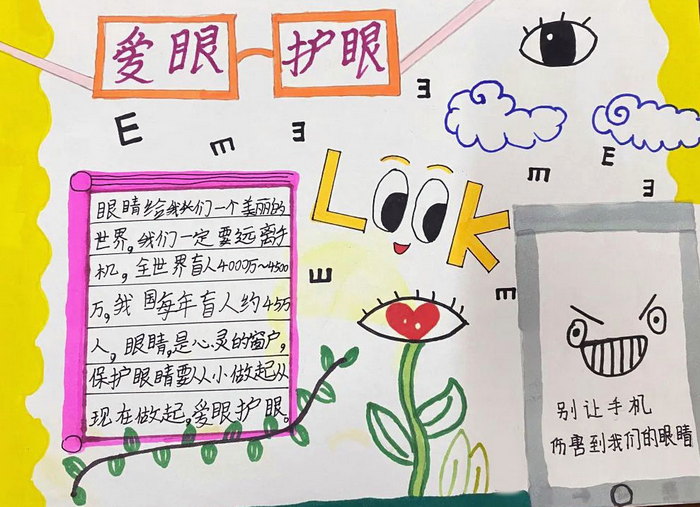 爱眼 护眼
E
E
E
E
E
E
E
LOOK
E
E
眼睛给我们一个美丽的
世界,我们一定要远离手
机,全世界盲人4000万~4500
万,我国每年盲人约45万
人,眼睛,是心灵的窗户,
保护眼睛要从小做起从
现在做起,爱眼护眼。
别让手机
伤害到我们的眼睛